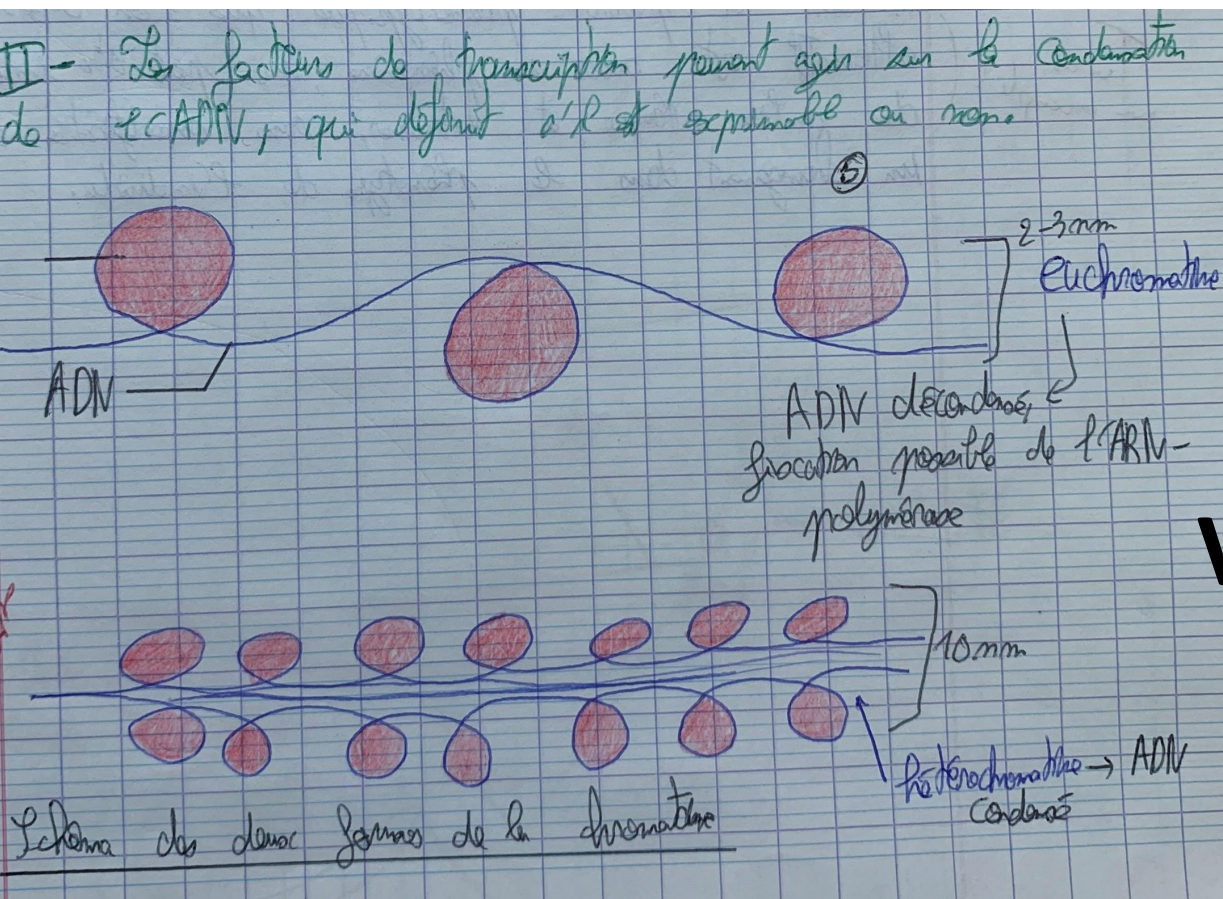 II - Les facteurs de transcription peuvent agir sur la condensation
de l'ADN, qui définit s'il est exprimable ou non.
⑤
2-3 nm
euchromatine
ADN
ADN décondensé,
fixation possible de l'ARN-
polymérase
10 nm
hétérochromatine → ADN
condensé
Schéma des deux formes de la chromatine